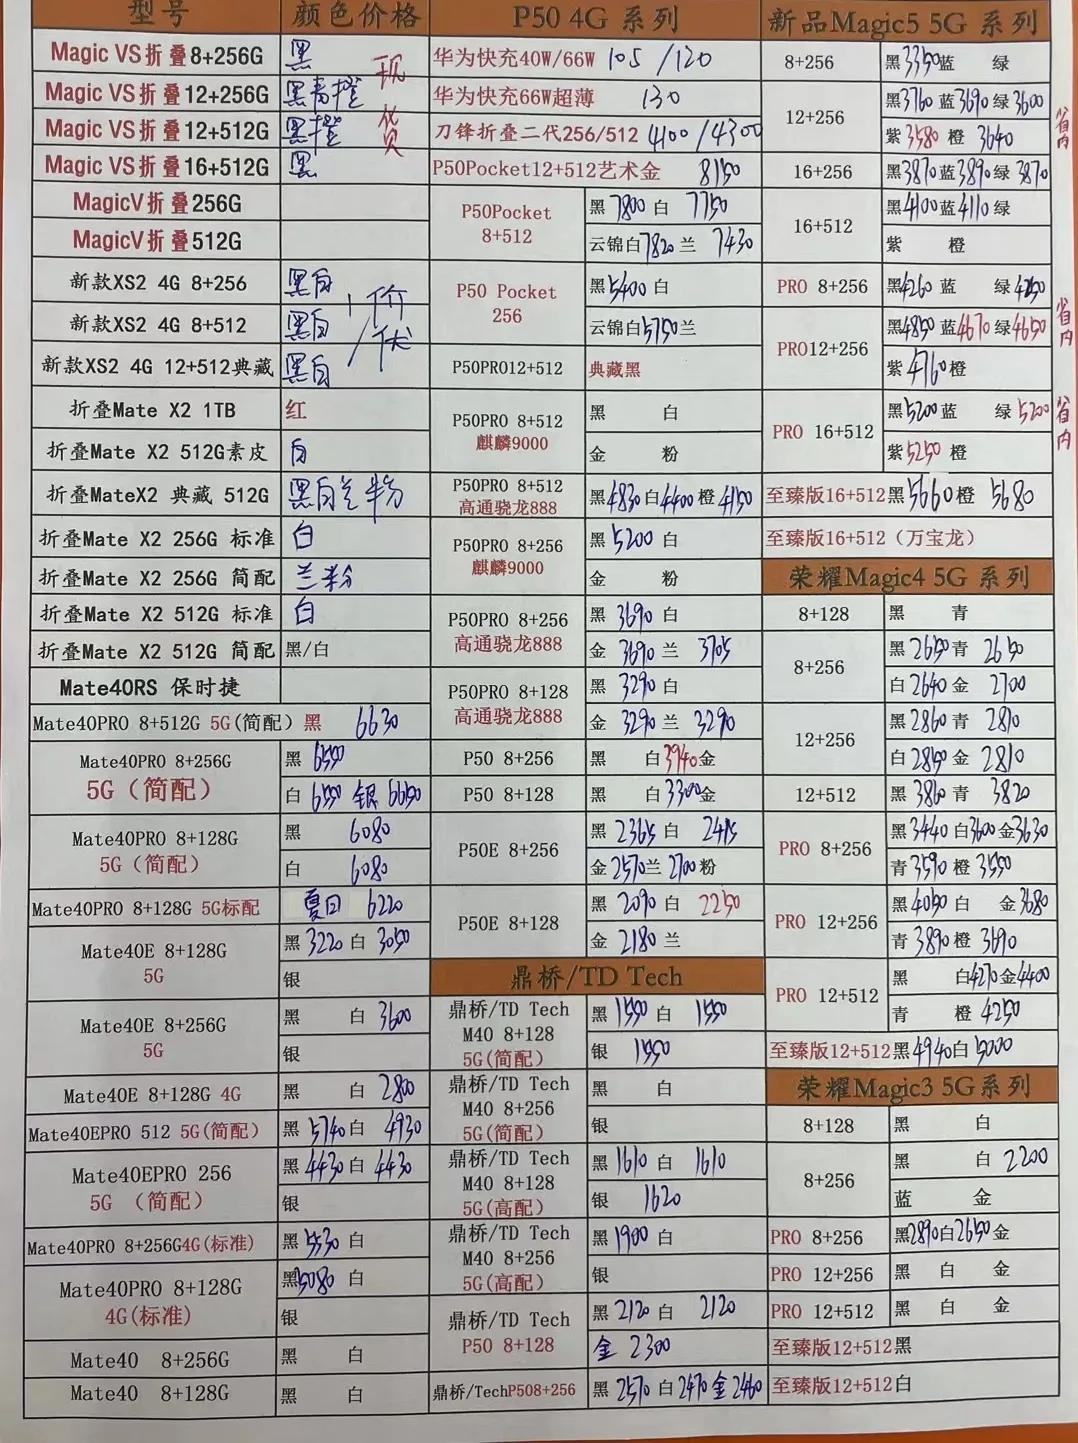 型号 颜色价格 P50 4G 系列 新品Magic5 5G 系列
Magic VS折叠8+256G 黑 现
Magic VS折叠12+256G 黑青橙
Magic VS折叠12+512G 黑橙 货
Magic VS折叠16+512G 黑
MagicV折叠256G
MagicV折叠512G
新款XS2 4G 8+256 黑白
新款XS2 4G 8+512 黑白
新款XS2 4G 12+512典藏 黑白
折叠Mate X2 1TB 红
折叠Mate X2 512G素皮 白
折叠MateX2 典藏 512G 黑白兰粉
折叠Mate X2 256G 标准 白
折叠Mate X2 256G 简配 兰粉
折叠Mate X2 512G 标准 白
折叠Mate X2 512G 简配 黑/白
Mate40RS 保时捷
Mate40PRO 8+512G 5G(简配) 黑 6630
Mate40PRO 8+256G
5G(简配)
黑 6550
白 6550 银 6650
Mate40PRO 8+128G
5G(简配)
黑 6080
白 6080
Mate40PRO 8+128G 5G标配 夏日 6220
Mate40E 8+128G
5G
黑 3220 白 3050
银
Mate40E 8+256G
5G
黑 白 3600
银
Mate40E 8+128G 4G 黑 白 2800
Mate40EPRO 512 5G(简配) 黑 5740 白 4930
Mate40EPRO 256
5G (简配)
黑 4430 白 4430
银
Mate40PRO 8+256G4G(标准) 黑 5530 白
Mate40PRO 8+128G
4G(标准)
黑 5080 白
银
Mate40 8+256G 黑 白
Mate40 8+128G 黑 白
华为快充40W/66W 105 /120
华为快充66W超薄 130
刀锋折叠二代256/512 4100 /4300
P50Pocket12+512艺术金 8150
P50Pocket
8+512
黑 7800 白 7750
云锦白7820兰 7430
P50 Pocket
256
黑5400 白
云锦白5750兰
P50PRO12+512 典藏黑
P50PRO 8+512
麒麟9000
黑 白
金 粉
P50PRO 8+512
高通骁龙888
黑4830白4400橙4150
P50PRO 8+256
麒麟9000
黑 5200 白
金 粉
P50PRO 8+256
高通骁龙888
黑 3690 白
金 3690 兰 3705
P50PRO 8+128
高通骁龙888
黑 3290 白
金 3290 兰 3290
P50 8+256 黑 白3940金
P50 8+128 黑 白3300金
P50E 8+256
黑 2365 白 2415
金 2570兰 2700 粉
P50E 8+128
黑 2090 白 2250
金 2180 兰
鼎桥/TD Tech
鼎桥/TD Tech
M40 8+128
5G(简配)
黑 1550 白 1550
银 1550
鼎桥/TD Tech
M40 8+256
5G(简配)
黑 白
银
鼎桥/TD Tech
M40 8+128
5G(高配)
黑 1610 白 1610
银 1620
鼎桥/TD Tech
M40 8+256
5G(高配)
黑 1900 白
银
鼎桥/TD Tech
P50 8+128
黑 2120 白 2120
金 2300
鼎桥/TechP508+256 黑 2570 白2470金2460
8+256 黑3350蓝 绿
12+256
黑3760 蓝3690绿 3600
紫3580 橙 3640
省内
16+256 黑3870蓝3890绿 3870
16+512
黑4100蓝4110绿
紫 橙
PRO 8+256 黑4260 蓝 绿4250
PRO12+256
黑4850 蓝4670绿4650
紫4760橙
省内
PRO 16+512
黑5200蓝 绿5200
紫5250 橙
省内
至臻版16+512黑5660橙 5680
至臻版16+512（万宝龙）
荣耀Magic4 5G 系列
8+128 黑 青
8+256
黑 2650青 2650
白 2640 金 2700
12+256
黑2860 青 2810
白2850金 2810
12+512 黑 3860 青 3820
PRO 8+256
黑3440 白3600金3630
青3590 橙 3550
PRO 12+256
黑4050 白 金3680
青3890橙 3690
PRO 12+512
黑 白4270金4400
青 橙 4250
至臻版12+512黑4940白5000
荣耀Magic3 5G系列
8+128 黑 白
8+256
黑 白 2200
蓝 金
PRO 8+256 黑2890白2650金
PRO 12+256 黑 白 金
PRO 12+512 黑 白 金
至臻版12+512黑
至臻版12+512白